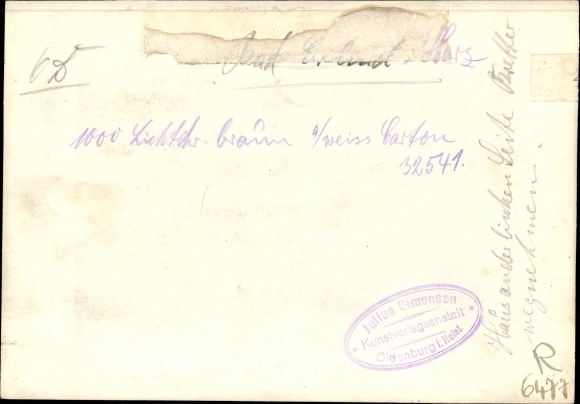 Bad Grund i. Harz
1000 Lichtdr. braun a/weiss Carton
32541.
Haus an der linken Seite Bretter
wegnehmen.
Julius Simonsen
* Kunstverlagsanstalt *
Oldenburg i. Holst.
6477